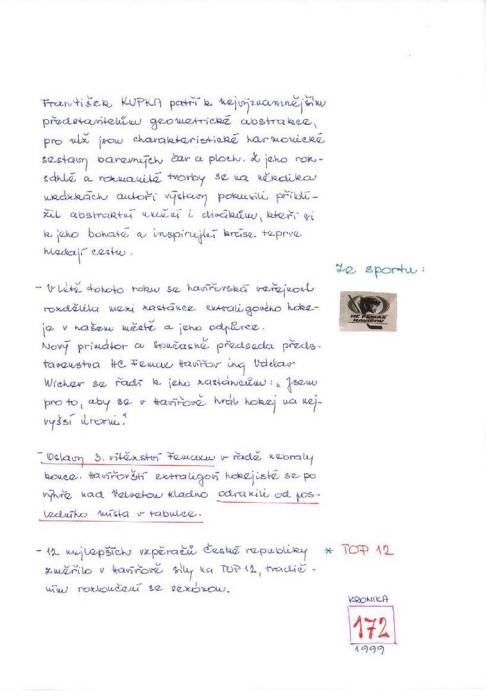 František KUPKA patří k nejvýznamnějším
představitelům geometrické abstrakce,
pro niž jsou charakteristické harmonické
sestavy barevných čar a ploch. Z jeho roz-
sáhlé a rozmanité tvorby se na několika
ukázkách autoři výstavy pokusili přiblí-
žit abstraktní umění i divákům, kteří si
k jeho bohaté a inspirující kráse teprve
hledají cestu.
Ze sportu:
- V létě tohoto roku se havířovská veřejnost
rozdělila mezi zastánce extraligového hoke-
je v našem městě a jeho odpůrce.
HC FEMAX
HAVÍŘOV
Nový primátor a současně předseda předs-
tavenstva HC Femax Havířov ing Václav
Wicher se řadí k jeho zastáncům: „Jsem
pro to, aby se v Havířově hrál hokej na nej-
vyšší úrovni."
- Oslavy 3. vítězství Femaxu v řadě nebraly
konce. Havířovští extraligoví hokejisté se po
výhře nad Velvetou Kladno odrazili od pos-
ledního místa v tabulce.
- 12 nejlepších vzpěračů České republiky * TOP 12
změřilo v Havířově síly na TOP 12, tradič-
ním rozloučení se sezónou.
KRONIKA
172
1999